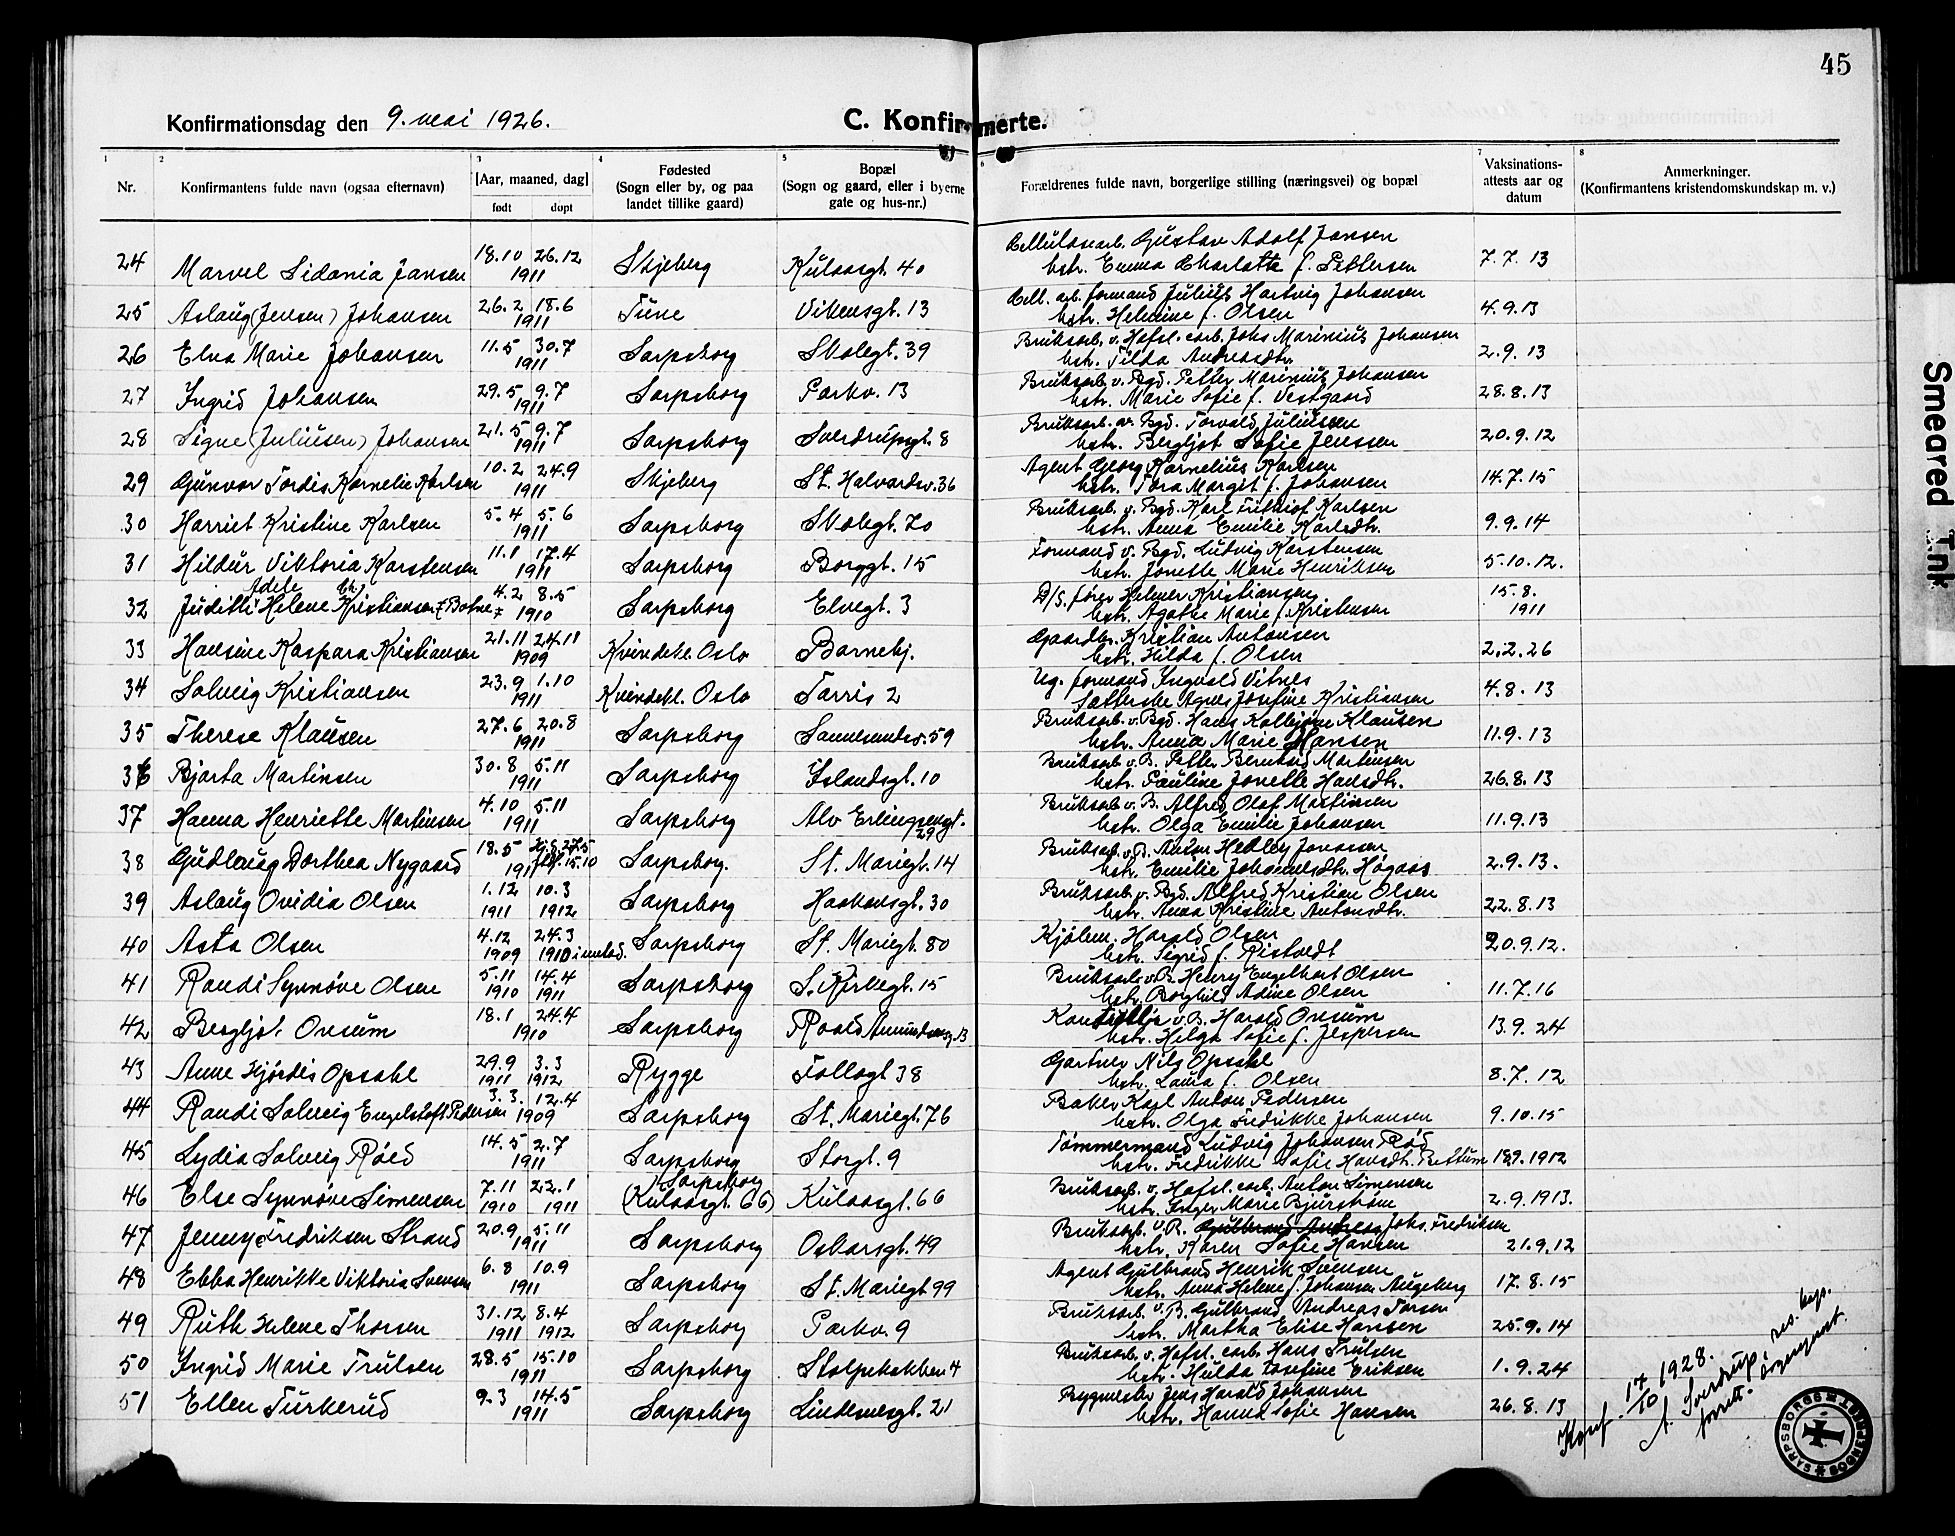 45
Konfirmationsdag den 9. mai 1926.
C. Konfirmerte.
1 2 3 4 5 6 7 8
Nr.
Konfirmantens fulde navn (ogsaa efternavn)
[Aar, maaned, dag]
født døpt
Fødested
(Sogn eller by, og paa
landet tillike gaard)
Bopæl
(Sogn og gaard, eller i byerne
gate og hus-nr.)
Forældrenes fulde navn, borgerlige stilling (næringsvei) og bopæl
Vaksinations-
attests aar og
datum
Anmerkninger.
(Konfirmantens kristendomskundskap m. v.)
24 Marvel Sidonia Jansen 18.10 26.12 1911 Skjeberg Kulaasgt. 40 Cellulosearb. Gustav Adolf Jansen
hstr. Emma Charlotte f. Pettersen 7.7.13
25 Aslaug (Jensen) Johansen 26.2 18.6 1911 Tune Vikensgt. 13 Cell. arb. formand Julius Hartvig Johansen
hstr. Helmine f. Olsen 4.9.13
26 Elna Marie Johansen 11.5 30.7 1911 Sarpsborg Skolegt. 39 Bruksarb. v. Hafsl. carb. Johs Marinius Johansen
hstr. Tilda Andreasdtr. 2.9.13
27 Ingrid Johansen 29.5 9.7 1911 Sarpsborg Parkv. 13 Bruksarb v. Bgd. Petter Marinius Johansen
hstr. Marie Sofie f. Vestgaard 28.8.13
28 Signe (Juliusen) Johansen 21.5 9.7 1911 Sarpsborg Sverdrupsgt. 8 Bruksarb. v. Bgd. Torvald Juliussen
hstr. Bergljot Sofie Jenssen 20.9.12
29 Gunvor Tordis Kornelie Karlsen 10.2 24.9 1911 Skjeberg St. Halvardsv. 36 Agent Georg Kornelius Karlsen
hstr. Tora Margit f. Johansen 14.7.15
30 Harriet Kristine Karlsen 5.4 5.6 1911 Sarpsborg Skolegt. 70 Bruksarb. v. Bgd. Karl Frithiof Karlsen
hstr. Anna Emilie Karlsdtr. 9.9.14
31 Hildur Viktoria Karstensen 11.1 17.4 1911 Sarpsborg Borggt. 15 Formand v. Bgd. Ludvig Karstensen
hstr. Jonette Marie Henriksen 5.10.12.
32 Judith Adele Helene Kristiansen 4.2 8.5 1910 Sarpsborg Elvegt. 3 D/S. fører Helmer Kristiansen
hstr. Agathe Marie f. Kristensen 15.8. 1911
33 Hansine Kaspara Kristiansen 21.11 24.11 1909 Kvindekl. Oslo Barnehj. Gaardbr. Kristian Antonsen
hstr. Hilda f. Olsen 2.2.26
34 Solveig Kristiansen 23.9 1.10 1911 Kvindekl. Oslo Tarris 2 Ug. formand Ingvald Vitnes
Sætterske Agnes Josefine Kristiansen 4.8.13
35 Therese Klausen 27.6 20.8 1911 Sarpsborg Sannesundsv. 59 Bruksarb. v. Bgd. Hans Kolbjørn Klausen
hstr. Anna Marie Hansen 11.9.13
36 Bjarta Martinsen 30.8 5.11 1911 Sarpsborg Islandsgt. 10 Bruksarb v. B. Petter Berntsen Martinsen
hstr. Pauline Jonette Hansdtr. 26.8.13
37 Hanna Henriette Martinsen 4.10 5.11 1911 Sarpsborg Alv Erlingsensgt. 29 Bruksarb v. B. Alfred Olaf Martinsen
hstr. Olga Emilie Johansen 11.9.13
38 Gudlaug Dorthea Nygaard 18.5 1911 27.5 15.10 Sarpsborg. St. Mariegt. 14 Bruksarb. v. B. Anton Hedley Jonassen
hstr. Emilie Johannesdtr. Høgaas 2.9.13.
39 Aslaug Ovidia Olsen 1.12 1911 10.3 1912 Sarpsborg Haakonsgt. 30 Bruksarb v. Bgd. Alfred Kristian Olsen
hstr. Anna Kristine Antonsdtr. 22.8.13
40 Asta Olsen 4.12 1909 24.3 1910 Sarpsborg St. Mariegt. 80 Kjølem. Harald Olsen
hstr. Sigrid f. Ristvedt 20.9.12.
41 Randi Synnøve Olsen 5.11 1910 14.4 1911 Sarpsborg S. Kirkegt. 15 Bruksarb v. B. Henry Engelhart Olsen
hstr. Borghild Adine Olsen 11.7.16
42 Bergljot Orerum 18.1 24.4 1910 Sarpsborg Roald Amundsensg. 13 v. B. Harald Orerum
hstr. Helga Sofie f. Jespersen 13.9.24
43 Anne Hjørdis Opsahl 29.9 1911 3.3 1912 Rygge Follogt 38 Gartner Nils Opsahl
hstr. Laura f. Olsen 8.7.12
44 Randi Solveig Engelstoft Pedersen 3.3. 12.4 1909 Sarpsborg St. Mariegt. 76 Baker Karl Anton Pedersen
hstr. Olga Fredrikke Johansen 9.10.15
45 Lydia Solveig Røed 14.5 2.7 1911 Sarpsborg Storgt. 9 Tømmermand Ludvig Johansen Rød
hstr. Fredrikke Sofie Hansdtr. Bettum 18.9.1912
46 Else Synnøve Simensen 7.11 1910 22.1 1911 Sarpsborg (Kulaasgt. 66) Kulaasgt. 66 Bruksarb. v. Hafsl. carb. Anton Simensen
hstr. Inger Marie Bjurstrøm 2.9.1913.
47 Jenny Fredriksen Strand 20.9 5.11 1911 Sarpsborg Oskarsgt. 49 Bruksarb v. B. Gulbrand Andreas Johs. Fredriksen
hstr. Karen Sofie Hansen 21.9.12
48 Ebba Henrikke Viktoria Svensen 6.8 10.9 1911 Sarpsborg St. Mariegt 99 Agent Gulbrand Henrik Svensen
hstr. Anna Helene f. Johansen Augeberg 17.8.15
49 Ruth Helene Thorsen 31.12 1911 8.4 1912 Sarpsborg Parkv. 9 Bruksarb v. B. Gulbrand Andreas Torsen
hstr. Martha Elise Hansen 25.9.14
50 Ingrid Marie Trulsen 28.5 15.10 1911 Sarpsborg Stolpebakken 4 Bruksarb. v. Hafsl. carb. Hans Trulsen
hstr. Hulda Josefine Eriksen 1.9.24
51 Ellen Turkerud 9.3 14.5 1911 Sarpsborg Lindemesgt. 21 Bygmester Jens Harald Johansen
hstr. Hanna Sofie Hansen 26.8.13
Konf. 14/10 1928.
A. Sverdrup, res. kap.
forrett. sogneprest.
Smeared Ink